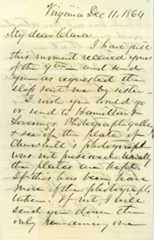 Virginia Dec 11. 1864
My dear Clara
I have just
this moment received yours
of the
you as requested the
slip sent me by sister
I wish you would go
or send to Hamilton &
Photograph
& see if the plate of
Churchill's photograph
was not preserved. Usually
the plates are kept.
If this has been
more of the photographs
taken. If not I will
send you down the
only remaining one